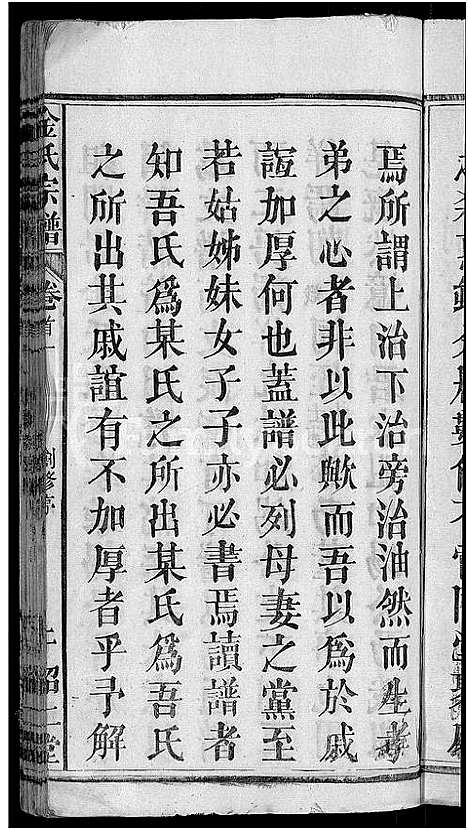 焉所謂上治下治旁治油然而生孝
弟之心者非以此歟而吾以爲於戚
誼加厚何也蓋譜必列母妻之黨至
若姑姊妹女子子亦必書焉讀譜者
知吾氏爲某氏之所出某氏爲吾氏
之所出其戚誼有不加厚者乎予解
金氏宗譜 卷首一